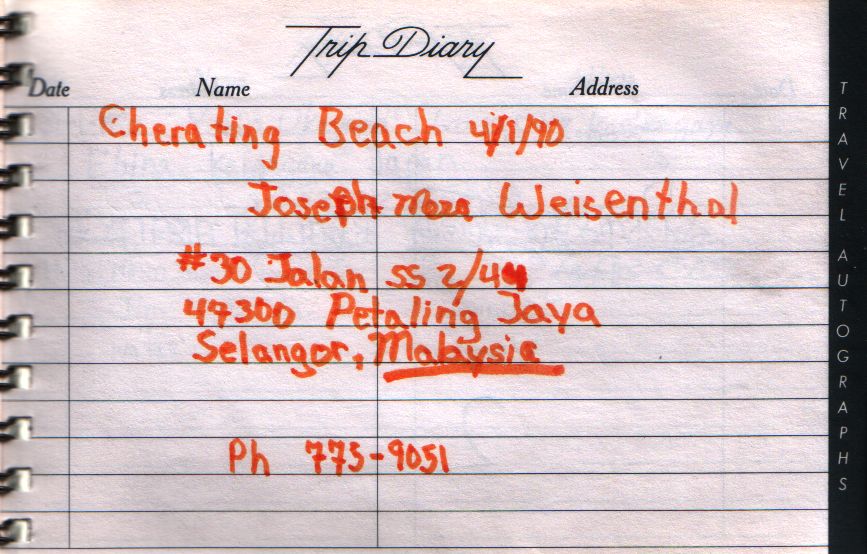 Trip Diary
Date Name Address
Cherating Beach 4/1/90
Joseph Meza Weisenthal
#30 Jalan SS 2/44
47300 Petaling Jaya
Selangor, Malaysia
Ph 775-9051
TRAVEL AUTOGRAPHS